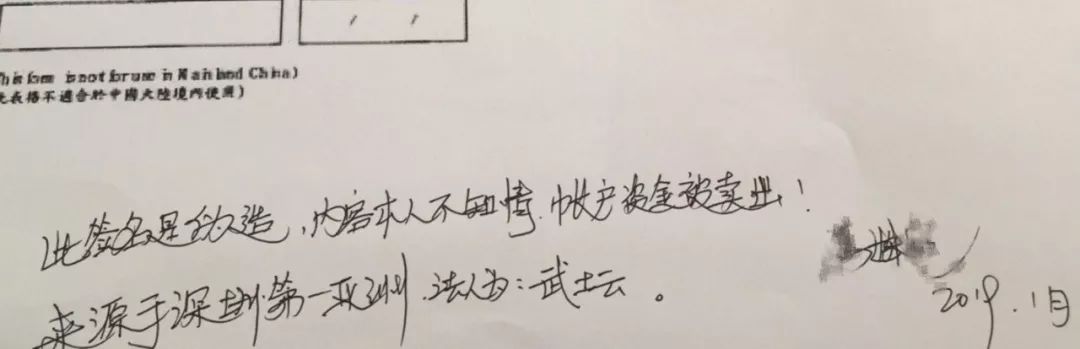 (This form is not for use in Mainland China)
此表格不適合於中國大陸境內使用)
此签名是伪造,内容本人不知情.帐户资金被卖出!
来源于深圳第一亚洲.法人为:武士云。
2019.1月